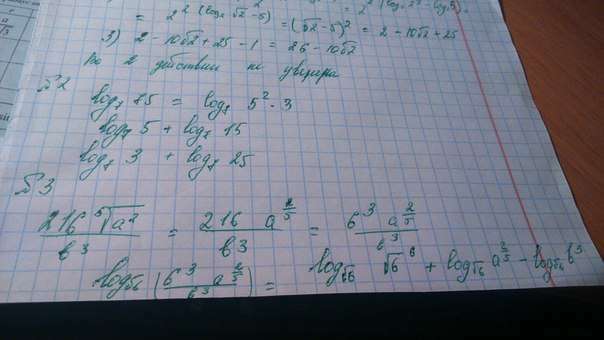 = 2^2 (log₂ √2 - 5) = (√2 - 5)^2 = 2 - 10√2 + 25
3) 2 - 10√2 + 25 - 1 = 26 - 10√2
Во 2 действии не уверена
№2
log₇ 75 = log₇ 5² · 3
log₇ 5 + log₇ 15
log₇ 3 + log₇ 25
№3
216 ⁵√a² / b³ = 216 a^(2/5) / b³ = 6³ a^(2/5) / b³
log√6 (6³ a^(2/5) / b³) = log√6 √6⁶ + log√6 a^(2/5) - log√6 b³